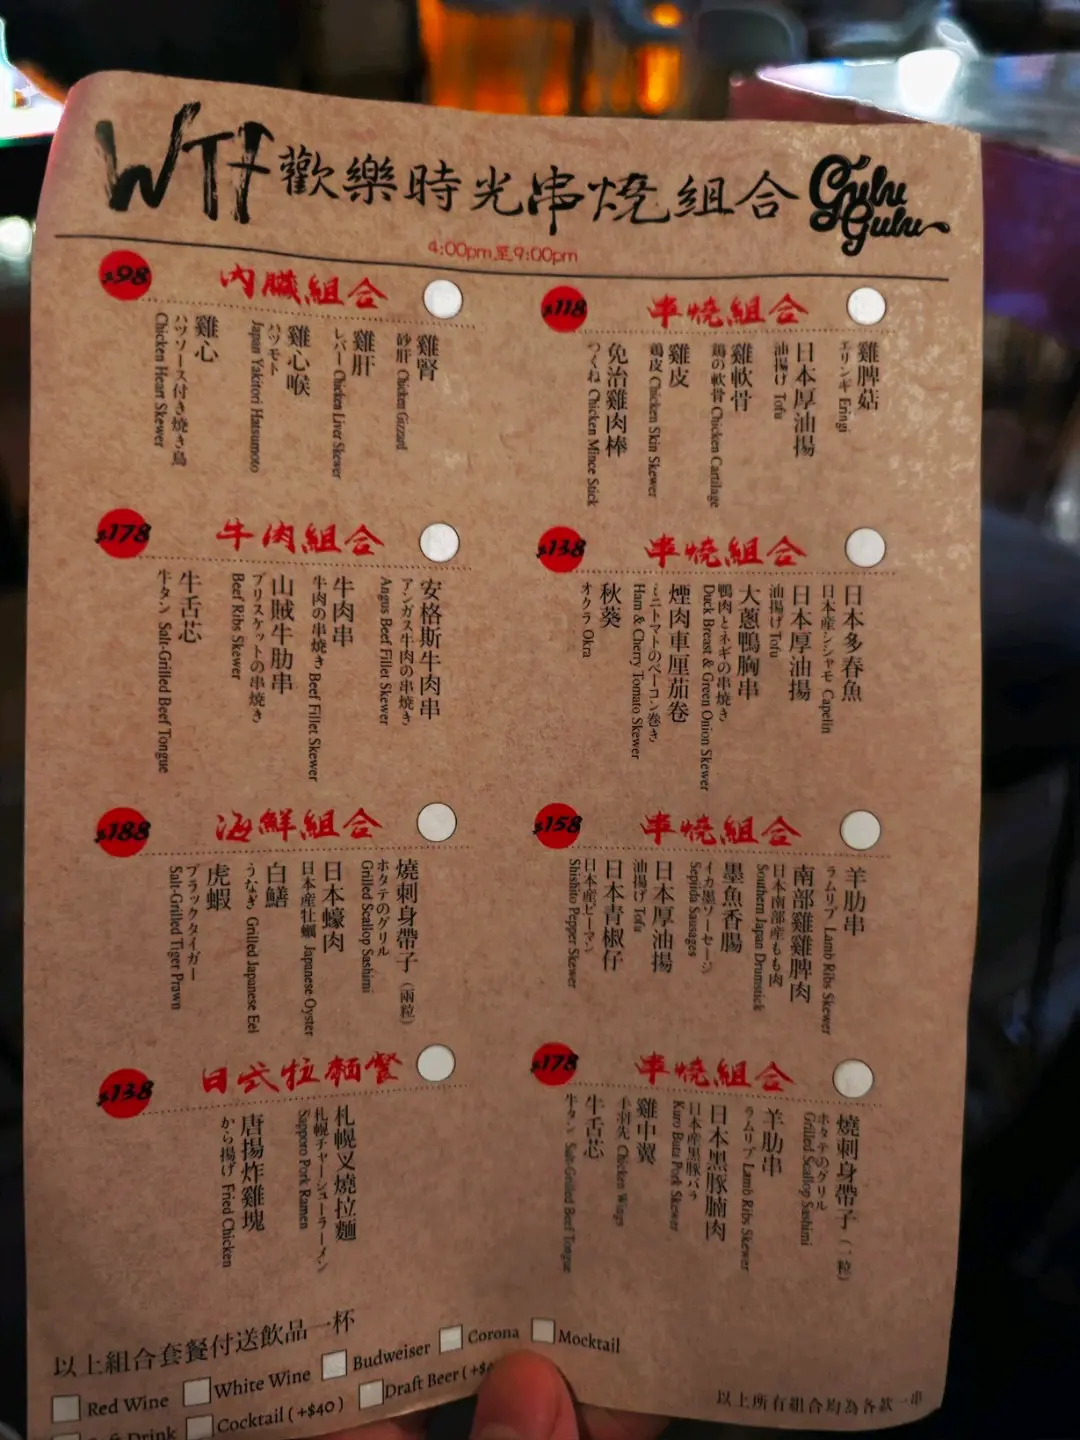 WTF 歡樂時光串燒組合 Gulu Gulu
4:00pm至9:00pm
$98 內臟組合
雞腎
砂肝 Chicken Gizzard
雞肝
レバー Chicken Liver Skewer
雞心喉
ハツモト
Japan Yakitori Hatsumoto
雞心
ハツソース付き焼き鳥
Chicken Heart Skewer
$118 串燒組合
雞脾菇
エリンギ Eringi
日本厚油揚
油揚げ Tofu
雞軟骨
鶏の軟骨 Chicken Cartilage
雞皮
鶏皮 Chicken Skin Skewer
免治雞肉棒
つくね Chicken Mince Stick
$178 牛肉組合
安格斯牛肉串
アンガス牛肉の串焼き
Angus Beef Fillet Skewer
牛肉串
牛肉の串焼き Beef Fillet Skewer
山賊牛肋串
ブリスケットの串焼き
Beef Ribs Skewer
牛舌芯
牛タン Salt-Grilled Beef Tongue
$138 串燒組合
日本多春魚
日本産シシャモ Capelin
日本厚油揚
油揚げ Tofu
大蔥鴨胸串
鴨肉とネギの串焼き
Duck Breast & Green Onion Skewer
煙肉車厘茄卷
ミニトマトのベーコン巻き
Ham & Cherry Tomato Skewer
秋葵
オクラ Okra
$188 海鮮組合
燒刺身帶子（兩粒）
ホタテのグリル
Grilled Scallop Sashimi
日本蠔肉
日本産牡蠣 Japanese Oyster
白鱔
うなぎ Grilled Japanese Eel
虎蝦
ブラックタイガー
Salt-Grilled Tiger Prawn
$158 串燒組合
羊肋串
ラムリブ Lamb Ribs Skewer
南部雞雞脾肉
日本南部産もも肉
Southern Japan Drumstick
墨魚香腸
イカ墨ソーセージ
Sepiida Sausages
日本厚油揚
油揚げ Tofu
日本青椒仔
日本産ピーマン
Shishito Pepper Skewer
$138 日式拉麵餐
札幌叉燒拉麵
札幌チャーシューラーメン
Sapporo Pork Ramen
唐揚炸雞塊
から揚げ Fried Chicken
$178 串燒組合
燒刺身帶子（一粒）
ホタテのグリル
Grilled Scallop Sashimi
羊肋串
ラムリブ Lamb Ribs Skewer
日本黑豚腩肉
日本産黒豚バラ
Kuro Buta Pork Skewer
雞中翼
手羽先 Chicken Wings
牛舌芯
牛タン Salt-Grilled Beef Tongue
以上組合套餐付送飲品一杯
Red Wine White Wine Budweiser Corona Mocktail
Drink Cocktail ( +$40 ) Draft Beer ( +$
以上所有組合均為各款一串